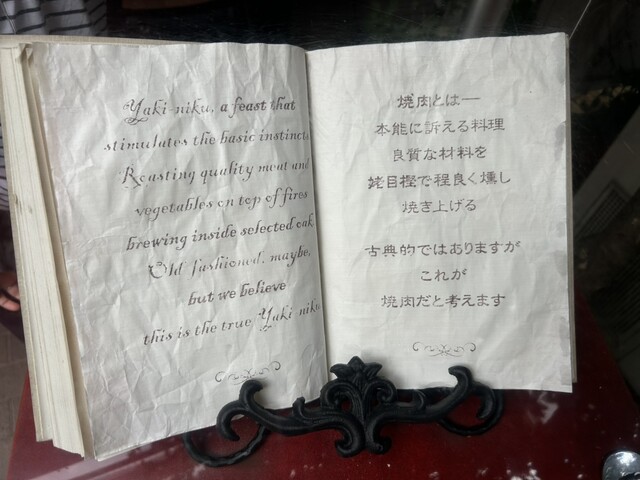 Yaki-niku, a feast that
stimulates the basic instincts
Roasting quality meat and
vegetables on top of fires
brewing inside selected oak
Old fashioned, maybe,
but we believe
this is the true Yaki-niku
焼肉とは―
本能に訴える料理
良質な材料を
姥目樫で程良く燻し
焼き上げる
古典的ではありますが
これが
焼肉だと考えます